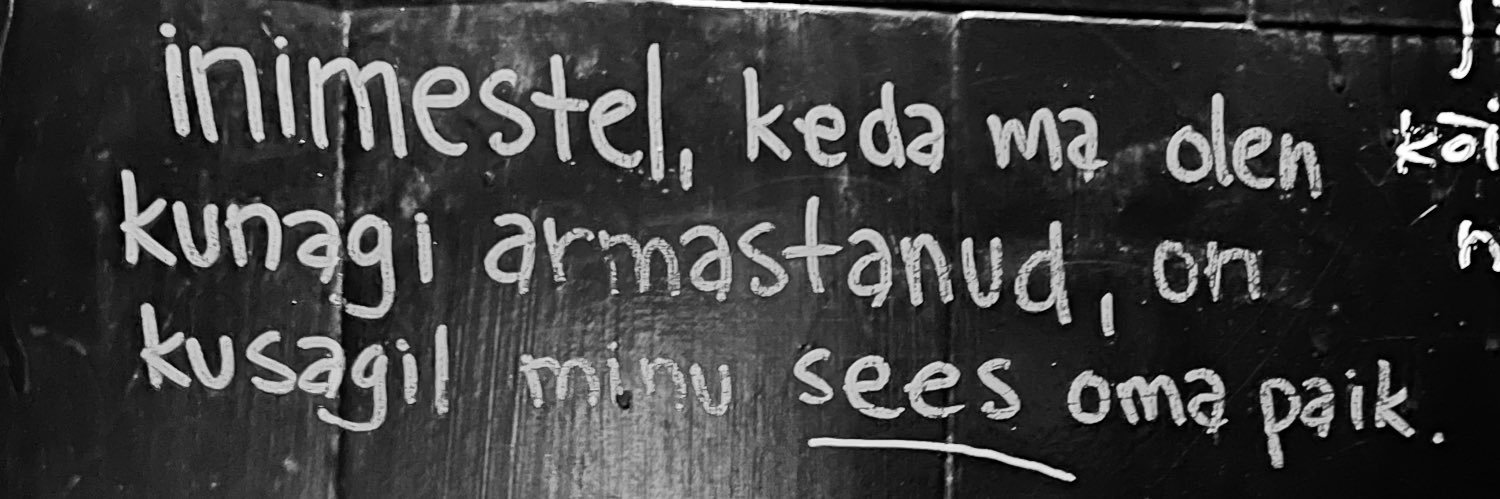 inimestel, keda ma olen
kunagi armastanud, on
kusagil minu sees oma paik.